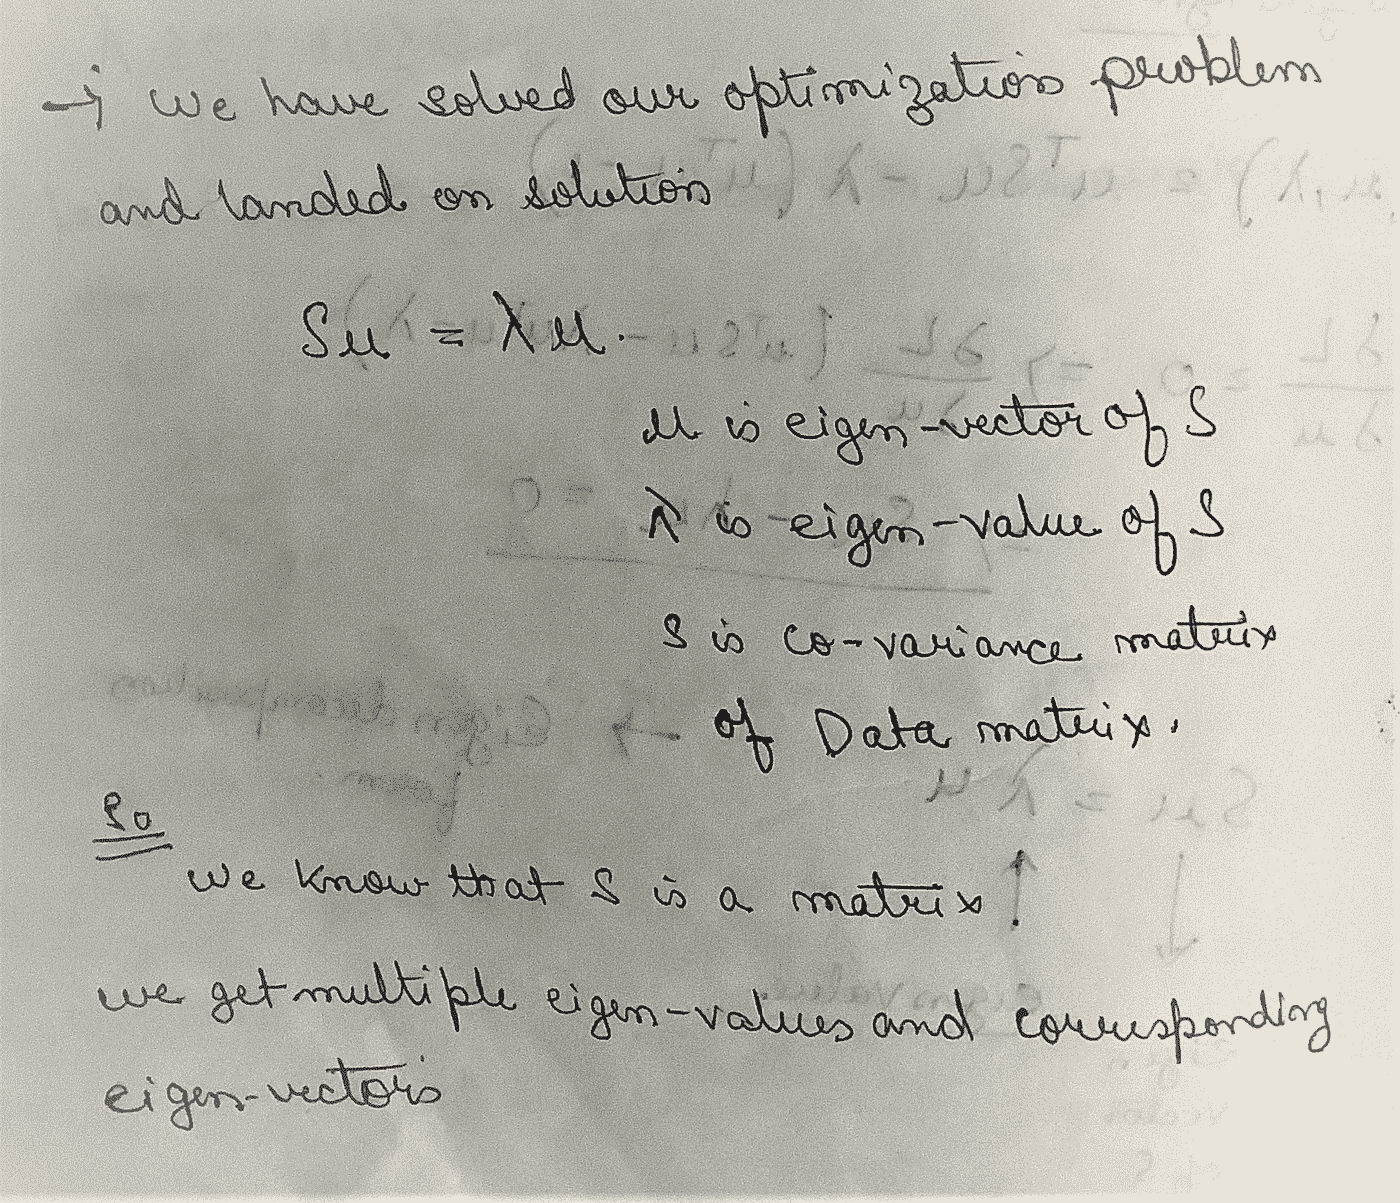 → we have solved our optimization problem
and landed on solution
Su = λu.
u is eigen-vector of S
λ is eigen-value of S
S is co-variance matrix
of Data matrix.
So
we know that S is a matrix
we get multiple eigen-values and corresponding
eigen-vectors